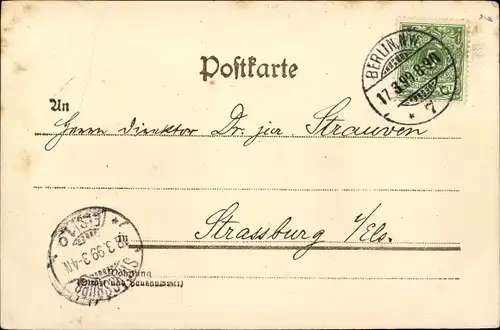 BERLIN, N.W.
17.3.99.8-9N.
* 7
Postkarte
An
Herrn Direktor Dr. jur. Strauven
in
Strassburg i/Els.
3.99.3-4N
Wohnung
(Straße und Hausnummer)